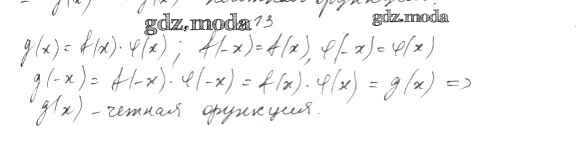 = g(x) – функция.
gdz.moda 13 gdz.moda
g(x) = f(x)·φ(x); f(-x) = f(x), φ(-x) = φ(x)
g(-x) = f(-x)·φ(-x) = f(x)·φ(x) = g(x) =>
g(x) – четная функция.